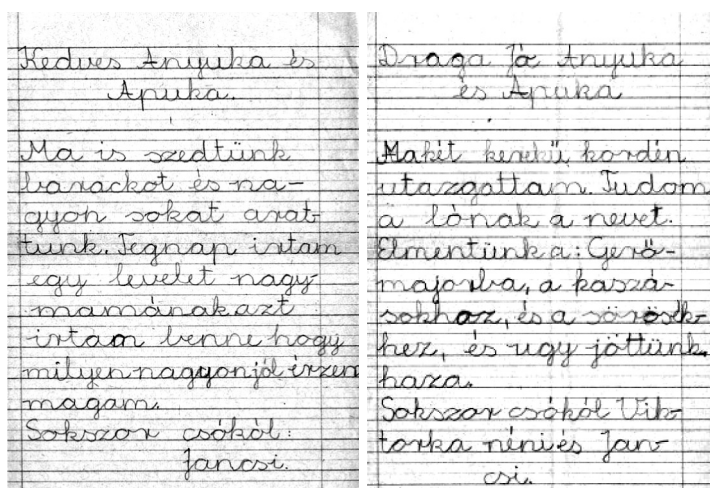 Kedves Anyuka és
Apuka.
Ma is szedtünk
barackot és na-
gyon sokat arat-
tunk. Tegnap irtam
egy levelet nagy-
mamának azt
irtam benne hogy
milyen nagyon jól érzem
magam.
Sokszor csókól:
Jancsi.
Draga Jó Anyuka
és Apuka
Ma két kerekü kordén
utazgattam. Tudom
a lónak a nevet.
Elmentünk a: Gerő-
majorba, a kaszá-
sokhoz, és a sörösék-
hez, és ugy jöttünk
haza.
Sokszor csókól Vik-
torka néni és Jan-
csi.